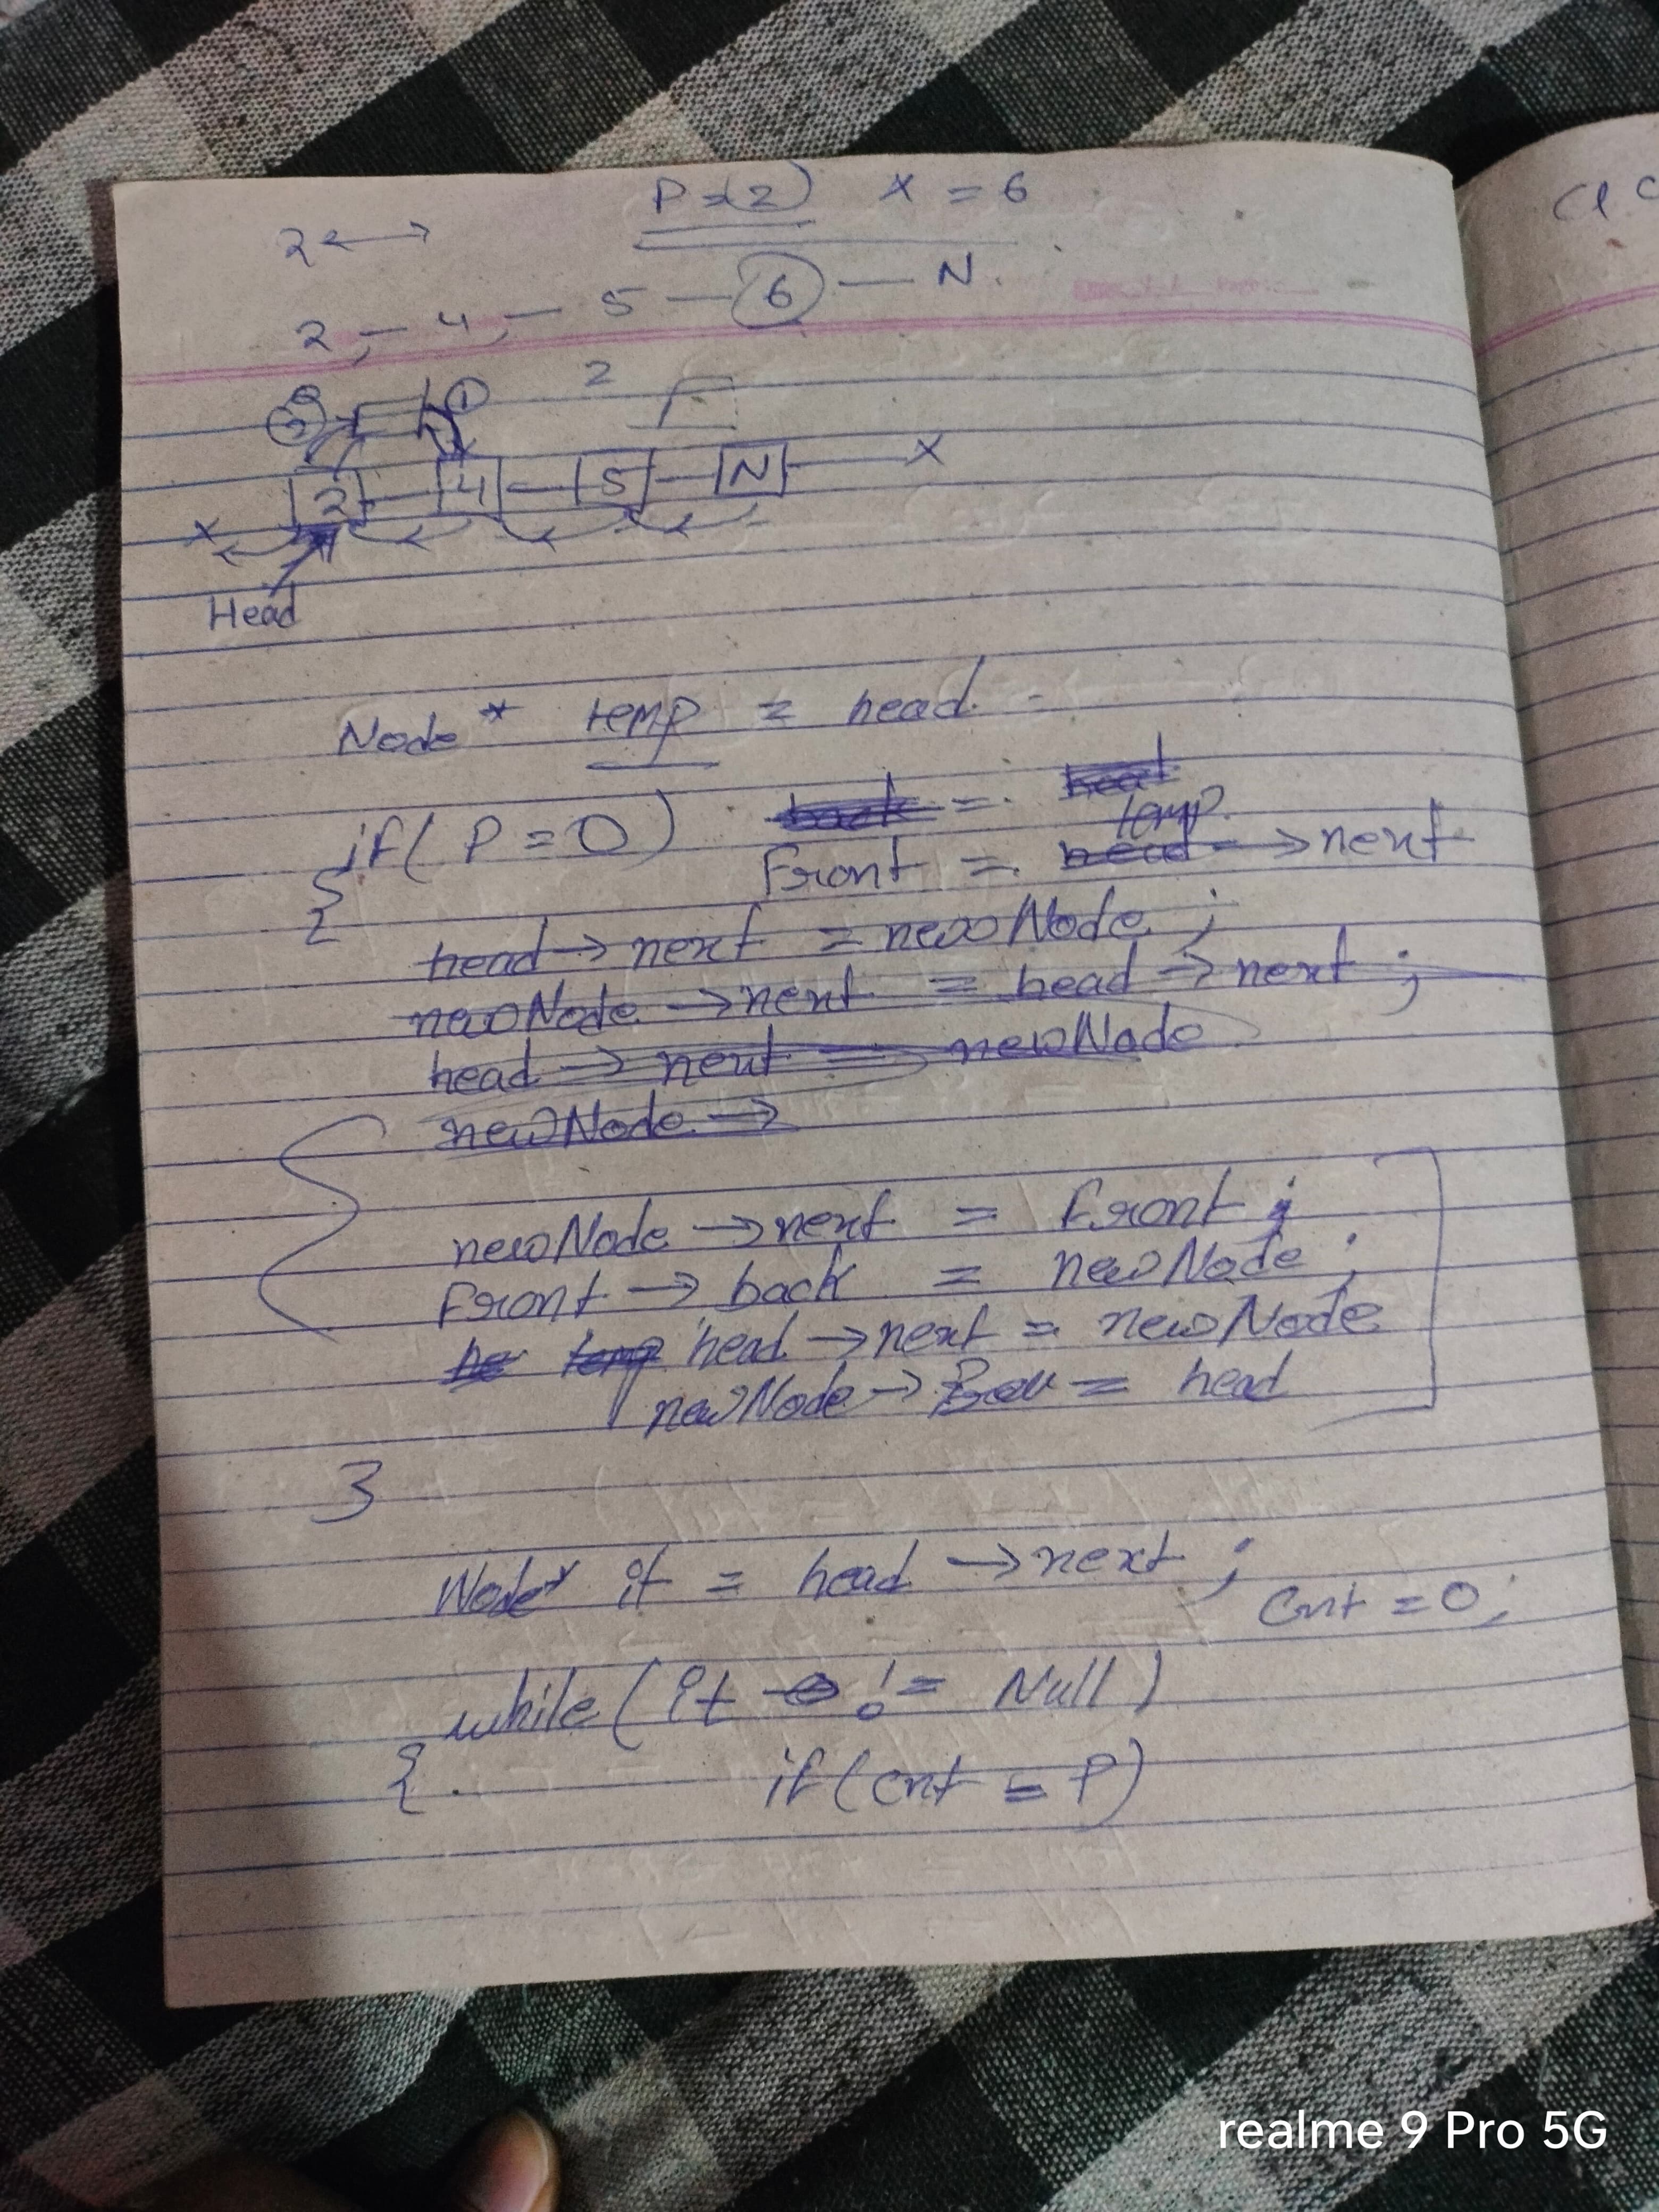 P = 2 X = 6
2 ↔
2 — 4 — 5 — 6 — N.
2
2 1
2 — 4 — 5 — N — X
X
Head
Node* temp = head
if( P = 0 )
temp
{ Front = head → next
head → next = newNode ;
newNode → next = head → next ;
head → next = newNode
newNode →
newNode → next = front ;
Front → back = newNode ;
he temp head → next = newNode
newNode → = head
}
Node* it = head → next ;
Cnt = 0;
while ( it != Null )
{ if ( cnt = P )
a
realme 9 Pro 5G